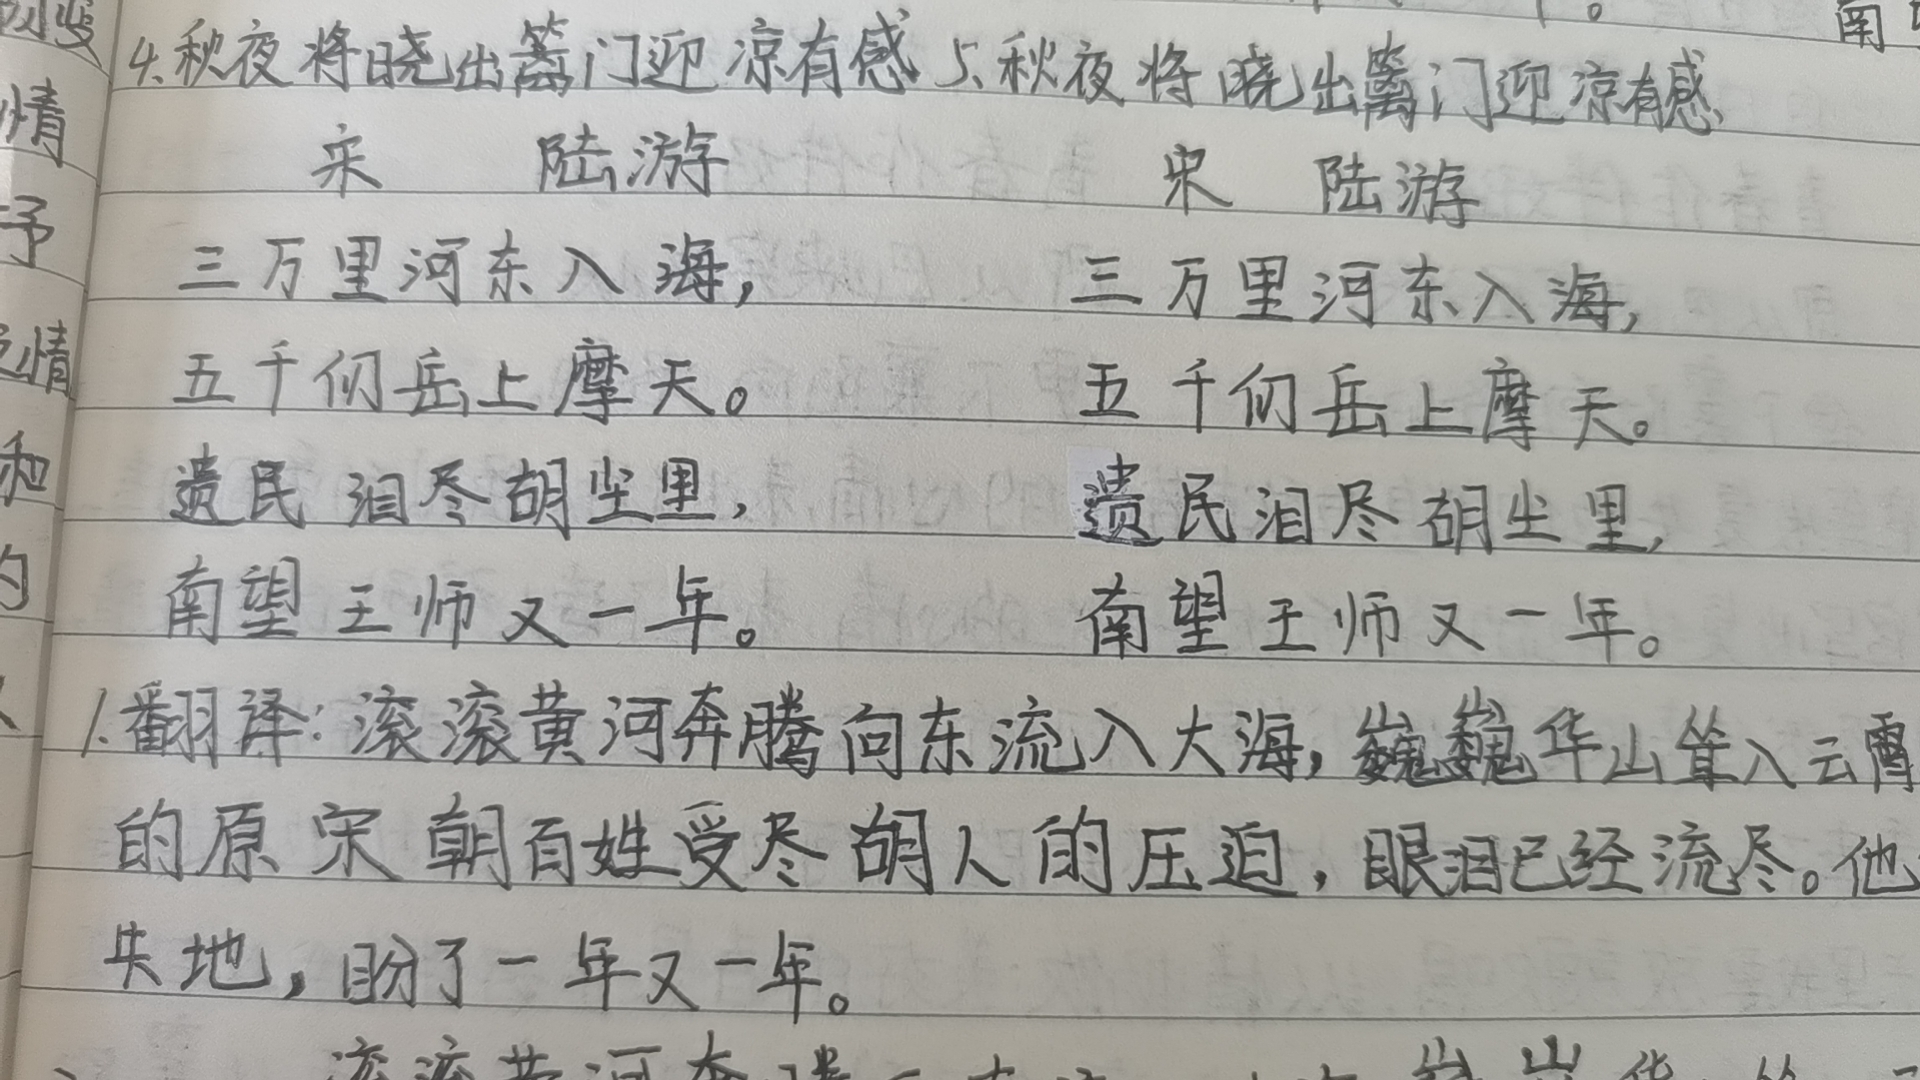 4.秋夜将晓出篱门迎凉有感 5.秋夜将晓出篱门迎凉有感
宋 陆游 宋 陆游
三万里河东入海, 三万里河东入海,
五千仞岳上摩天。 五千仞岳上摩天。
遗民泪尽胡尘里, 遗民泪尽胡尘里,
南望王师又一年。 南望王师又一年。
1.翻译:滚滚黄河奔腾向东流入大海,巍巍华山耸入云霄
的原宋朝百姓受尽胡人的压迫,眼泪已经流尽。他
失地,盼了一年又一年。
情
予
情
和
的
南